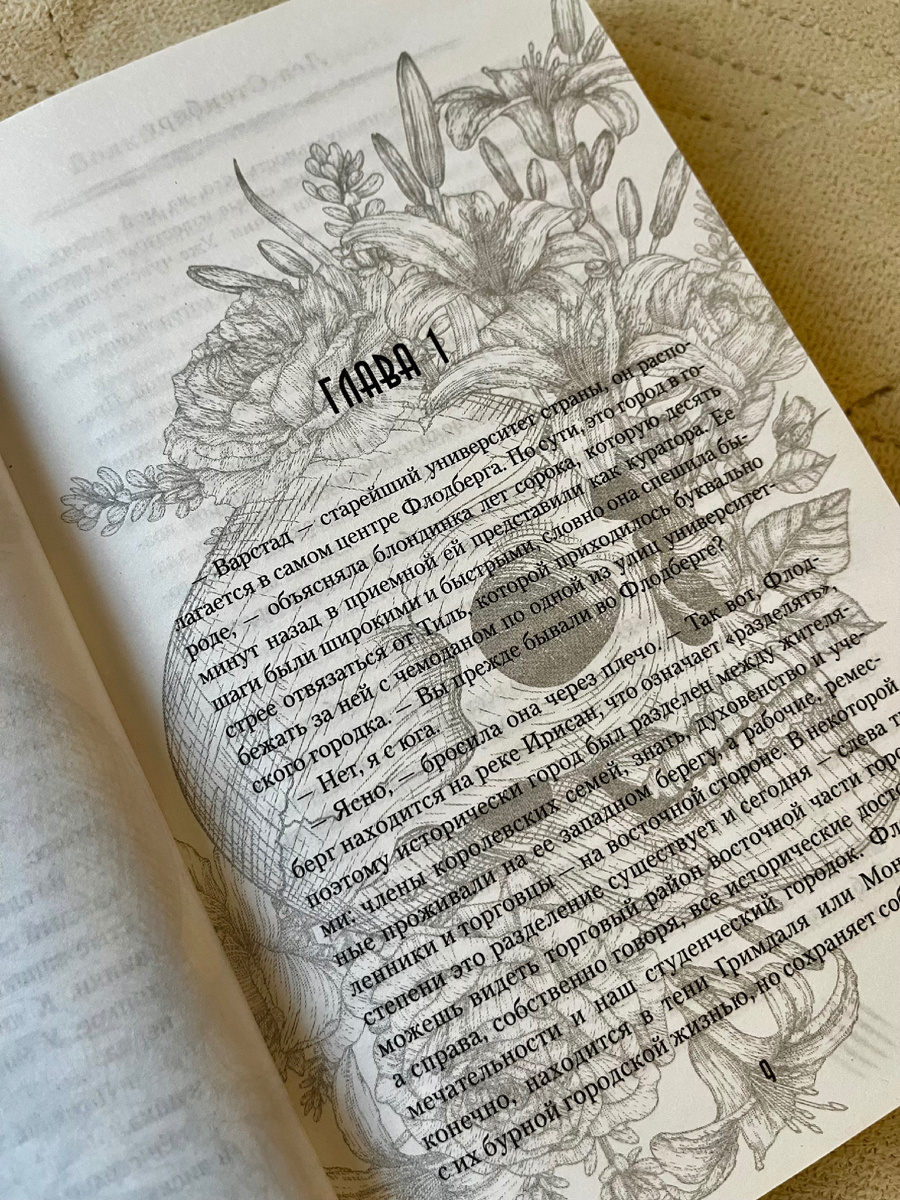 ГЛАВА 1
— Варстад — старейший университет страны, он распо-
лагается в самом центре Флодберга. По сути, это город в го-
роде, — объясняла блондинка лет сорока, которую десять
минут назад в приемной ей представили как куратора. Ее
шаги были широкими и быстрыми, словно она спешила бы-
стрее отвязаться от Тиль, которой приходилось буквально
бежать за ней с чемоданом по одной из улиц университет-
ского городка. — Вы прежде бывали во Флодберге?
— Нет, я с юга.
— Ясно, — бросила она через плечо. — Так вот, Флод-
берг находится на реке Ирисан, что означает «разделять»,
поэтому исторически город был разделен между жителя-
ми: члены королевских семей, знать, духовенство и уче-
ные проживали на ее западном берегу, а рабочие, ремес-
ленники и торговцы — на восточной стороне. В некоторой
степени это разделение существует и сегодня — слева
можешь видеть торговый район восточной части
а справа, собственно говоря, все исторические
мечательности и наш студенческий городок.
конечно, находится в тени Гримдаля или
с их бурной городской жизнью, но сохраняет
9